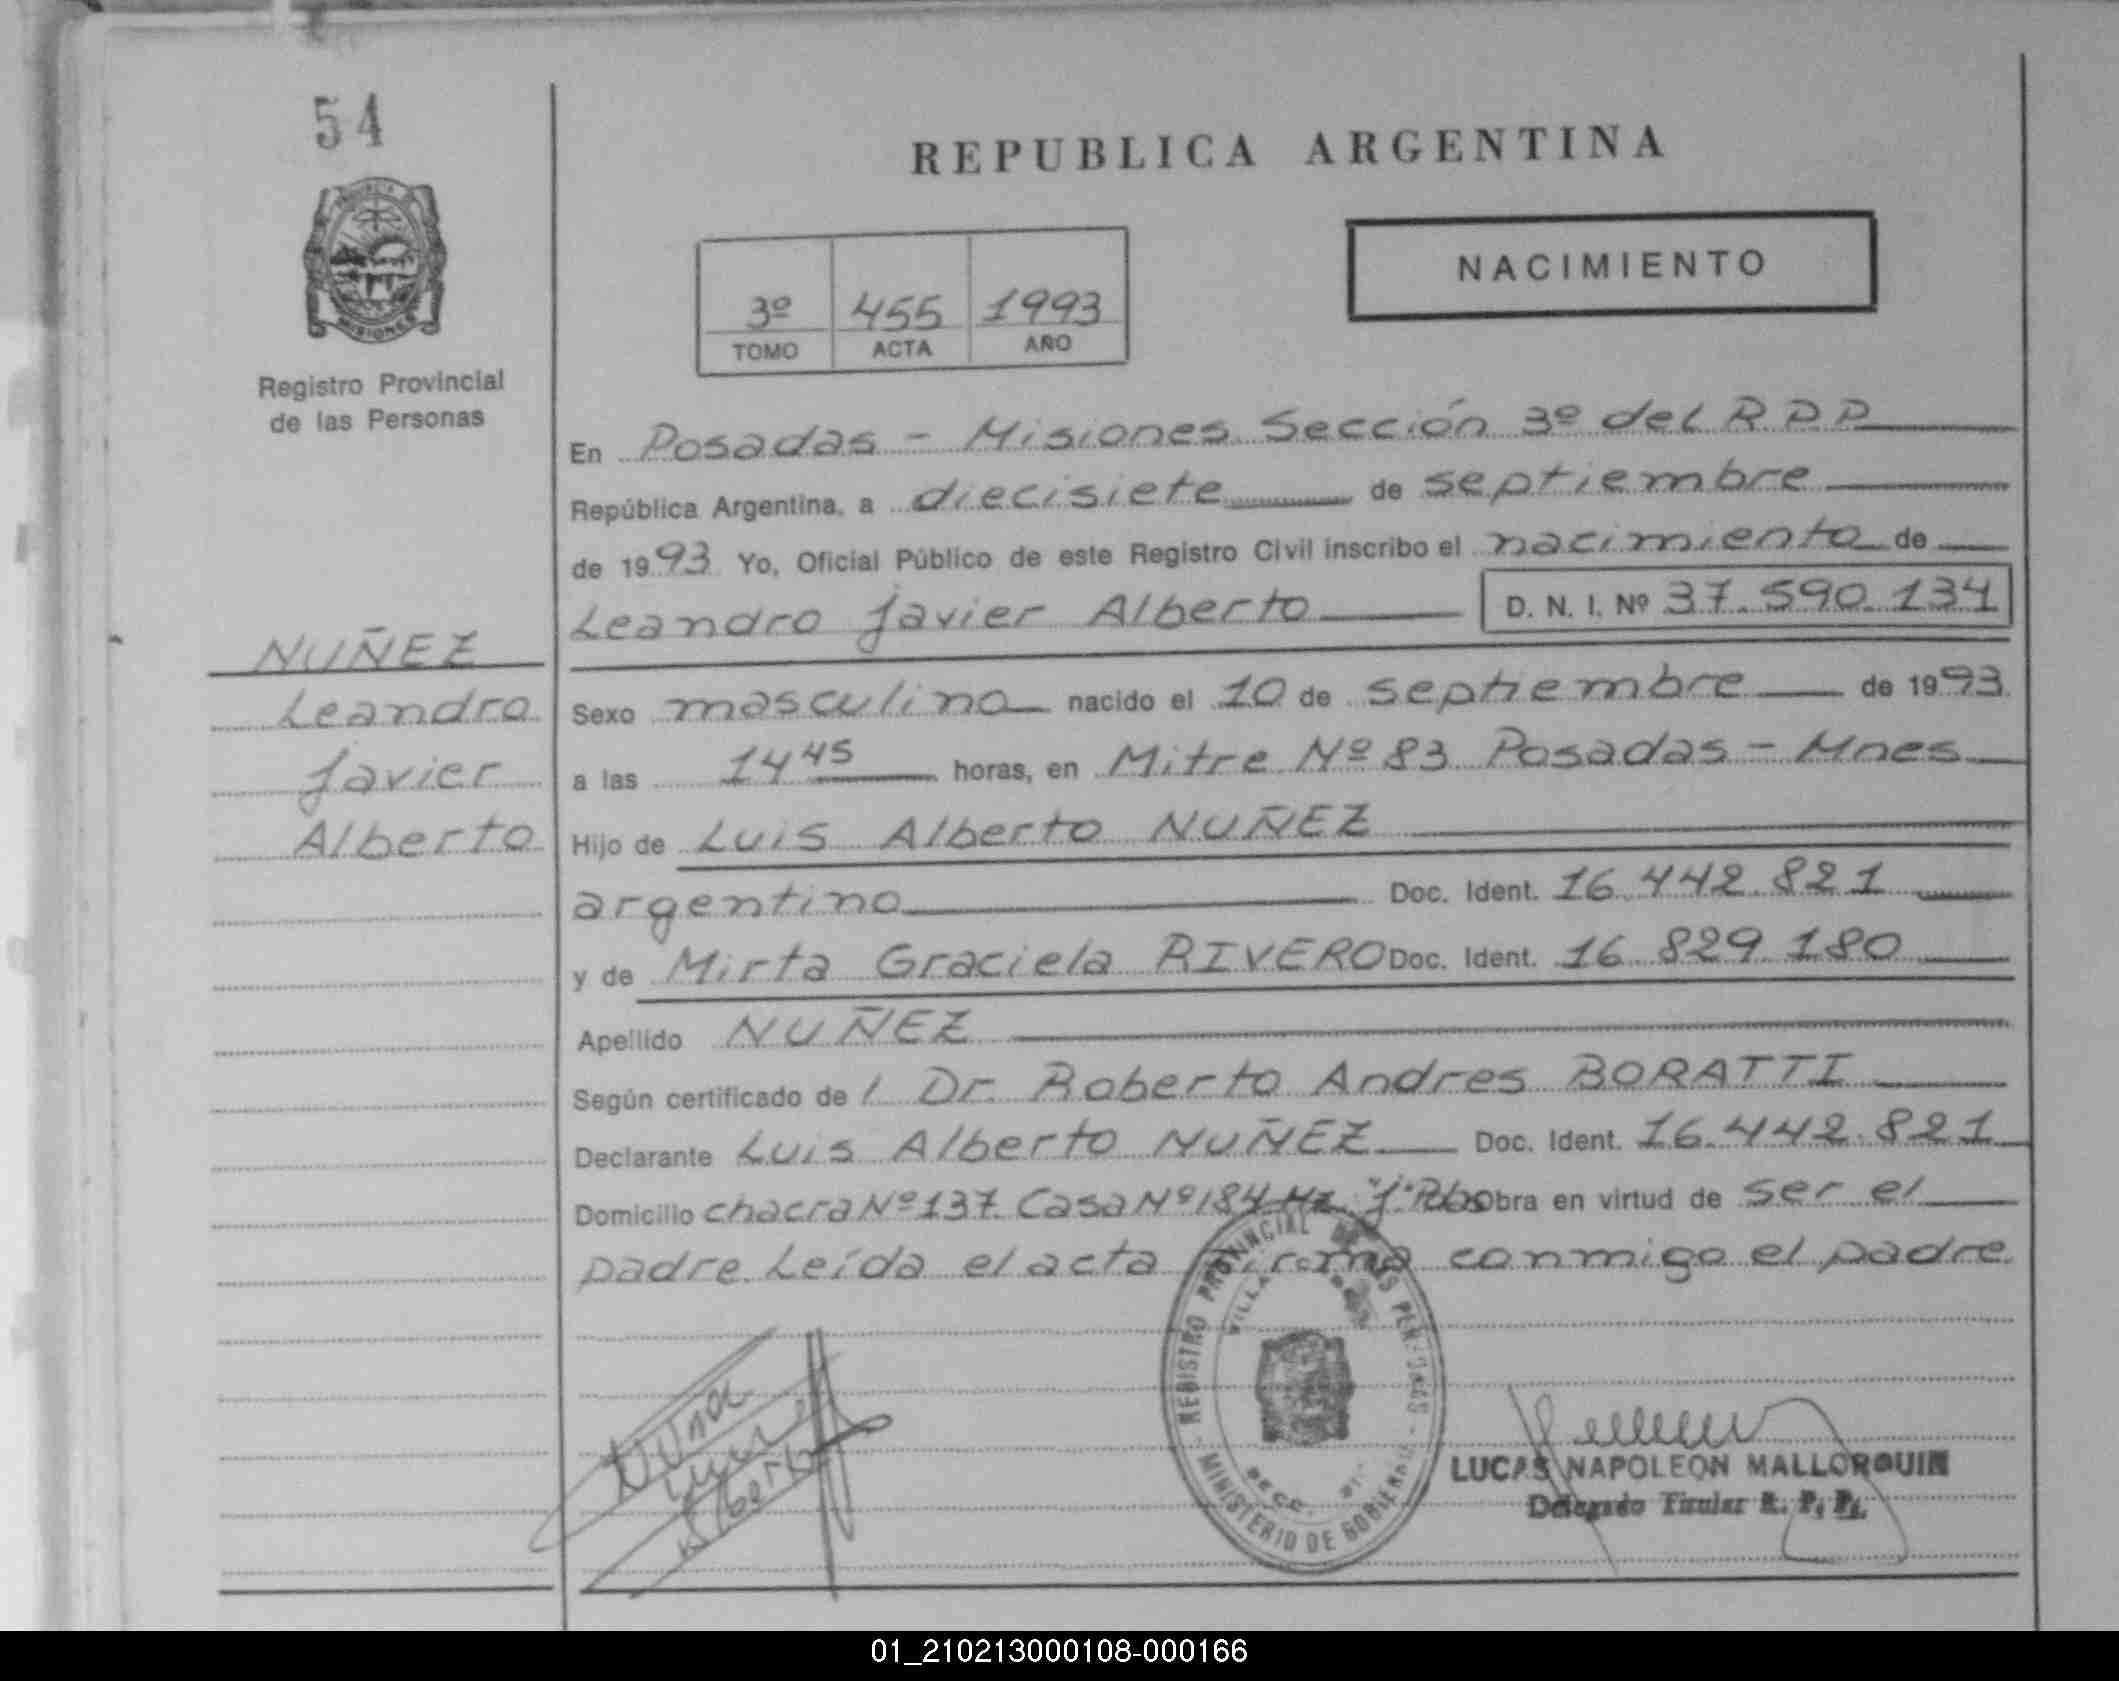 54
REPUBLICA ARGENTINA
NACIMIENTO
3º 455 1993
TOMO ACTA AÑO
MISIONES
Registro Provincial
de las Personas
En Posadas - Misiones Sección 3º del R.P.P
República Argentina, a diecisiete de septiembre
de 1993 Yo, Oficial Público de este Registro Civil inscribo el nacimiento de
Leandro Javier Alberto D. N. I. Nº 37.590.134
NUÑEZ
Leandro
Javier
Alberto
Sexo masculino nacido el 10 de septiembre de 1993
a las 14 45 horas, en Mitre Nº 83 Posadas - Mnes
Hijo de Luis Alberto NUÑEZ
argentino Doc. Ident. 16.442.821
y de Mirta Graciela RIVERO Doc. Ident. 16.829.180
Apellido NUÑEZ
Según certificado de l Dr. Roberto Andres BORATTI
Declarante Luis Alberto NUÑEZ Doc. Ident. 16.442.821
Domicilio chacra Nº 137 Casa Nº 184 Mz "J" Pdas Obra en virtud de ser el
padre. Leída el acta firma conmigo el padre
REGISTRO PROVINCIAL DE LAS PERSONAS - MINISTERIO DE GOBIERNO
VILLA
LUCAS NAPOLEON MALLORQUIN
Delegado Titular R. P. P.
01_210213000108-000166